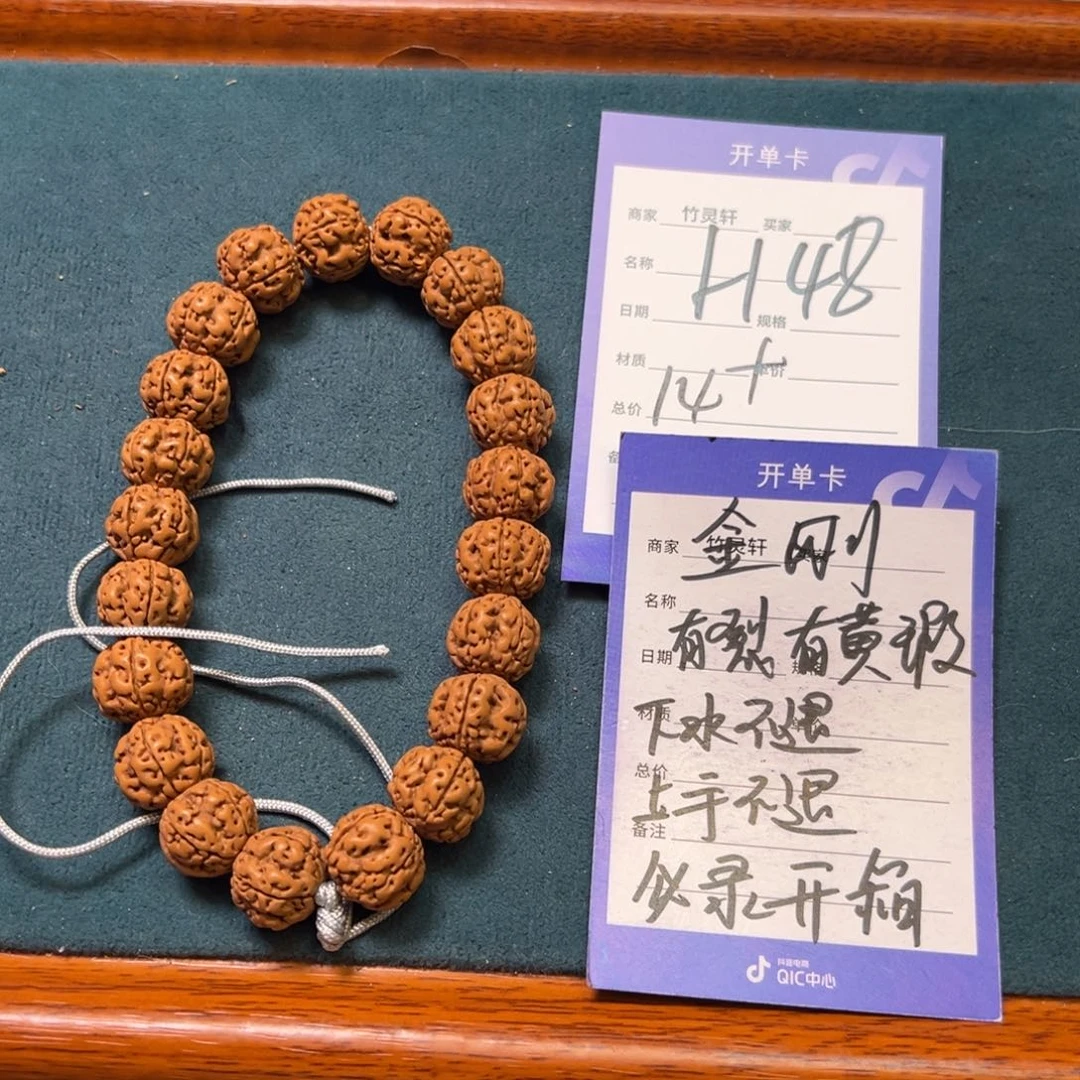 开单卡
商家 竹灵轩 买家
H48
名称
日期 规格
材质 单价
14+
总价
备
开单卡
商家 竹灵轩
金刚
名称
有裂有黄瑕
日期 规格
材质
下水不退
总价
上手不退
备注
必录开箱
抖音电商
QIC中心